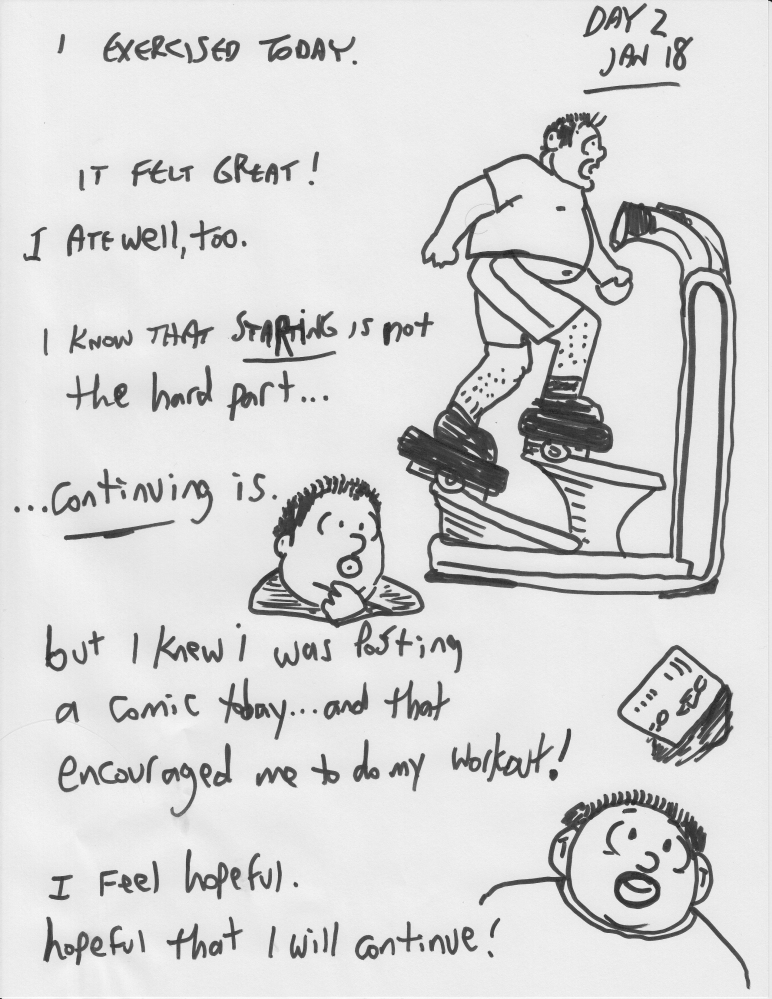 I EXERCISED TODAY.
DAY 2
JAN 18
IT FELT GREAT!
I ATE well, too.
I KNOW THAT STARTING is not
the hard part...
...continuing is.
but I knew i was Posting
a comic today...and that
encouraged me to do my workout!
I Feel hopeful.
hopeful that I will continue!